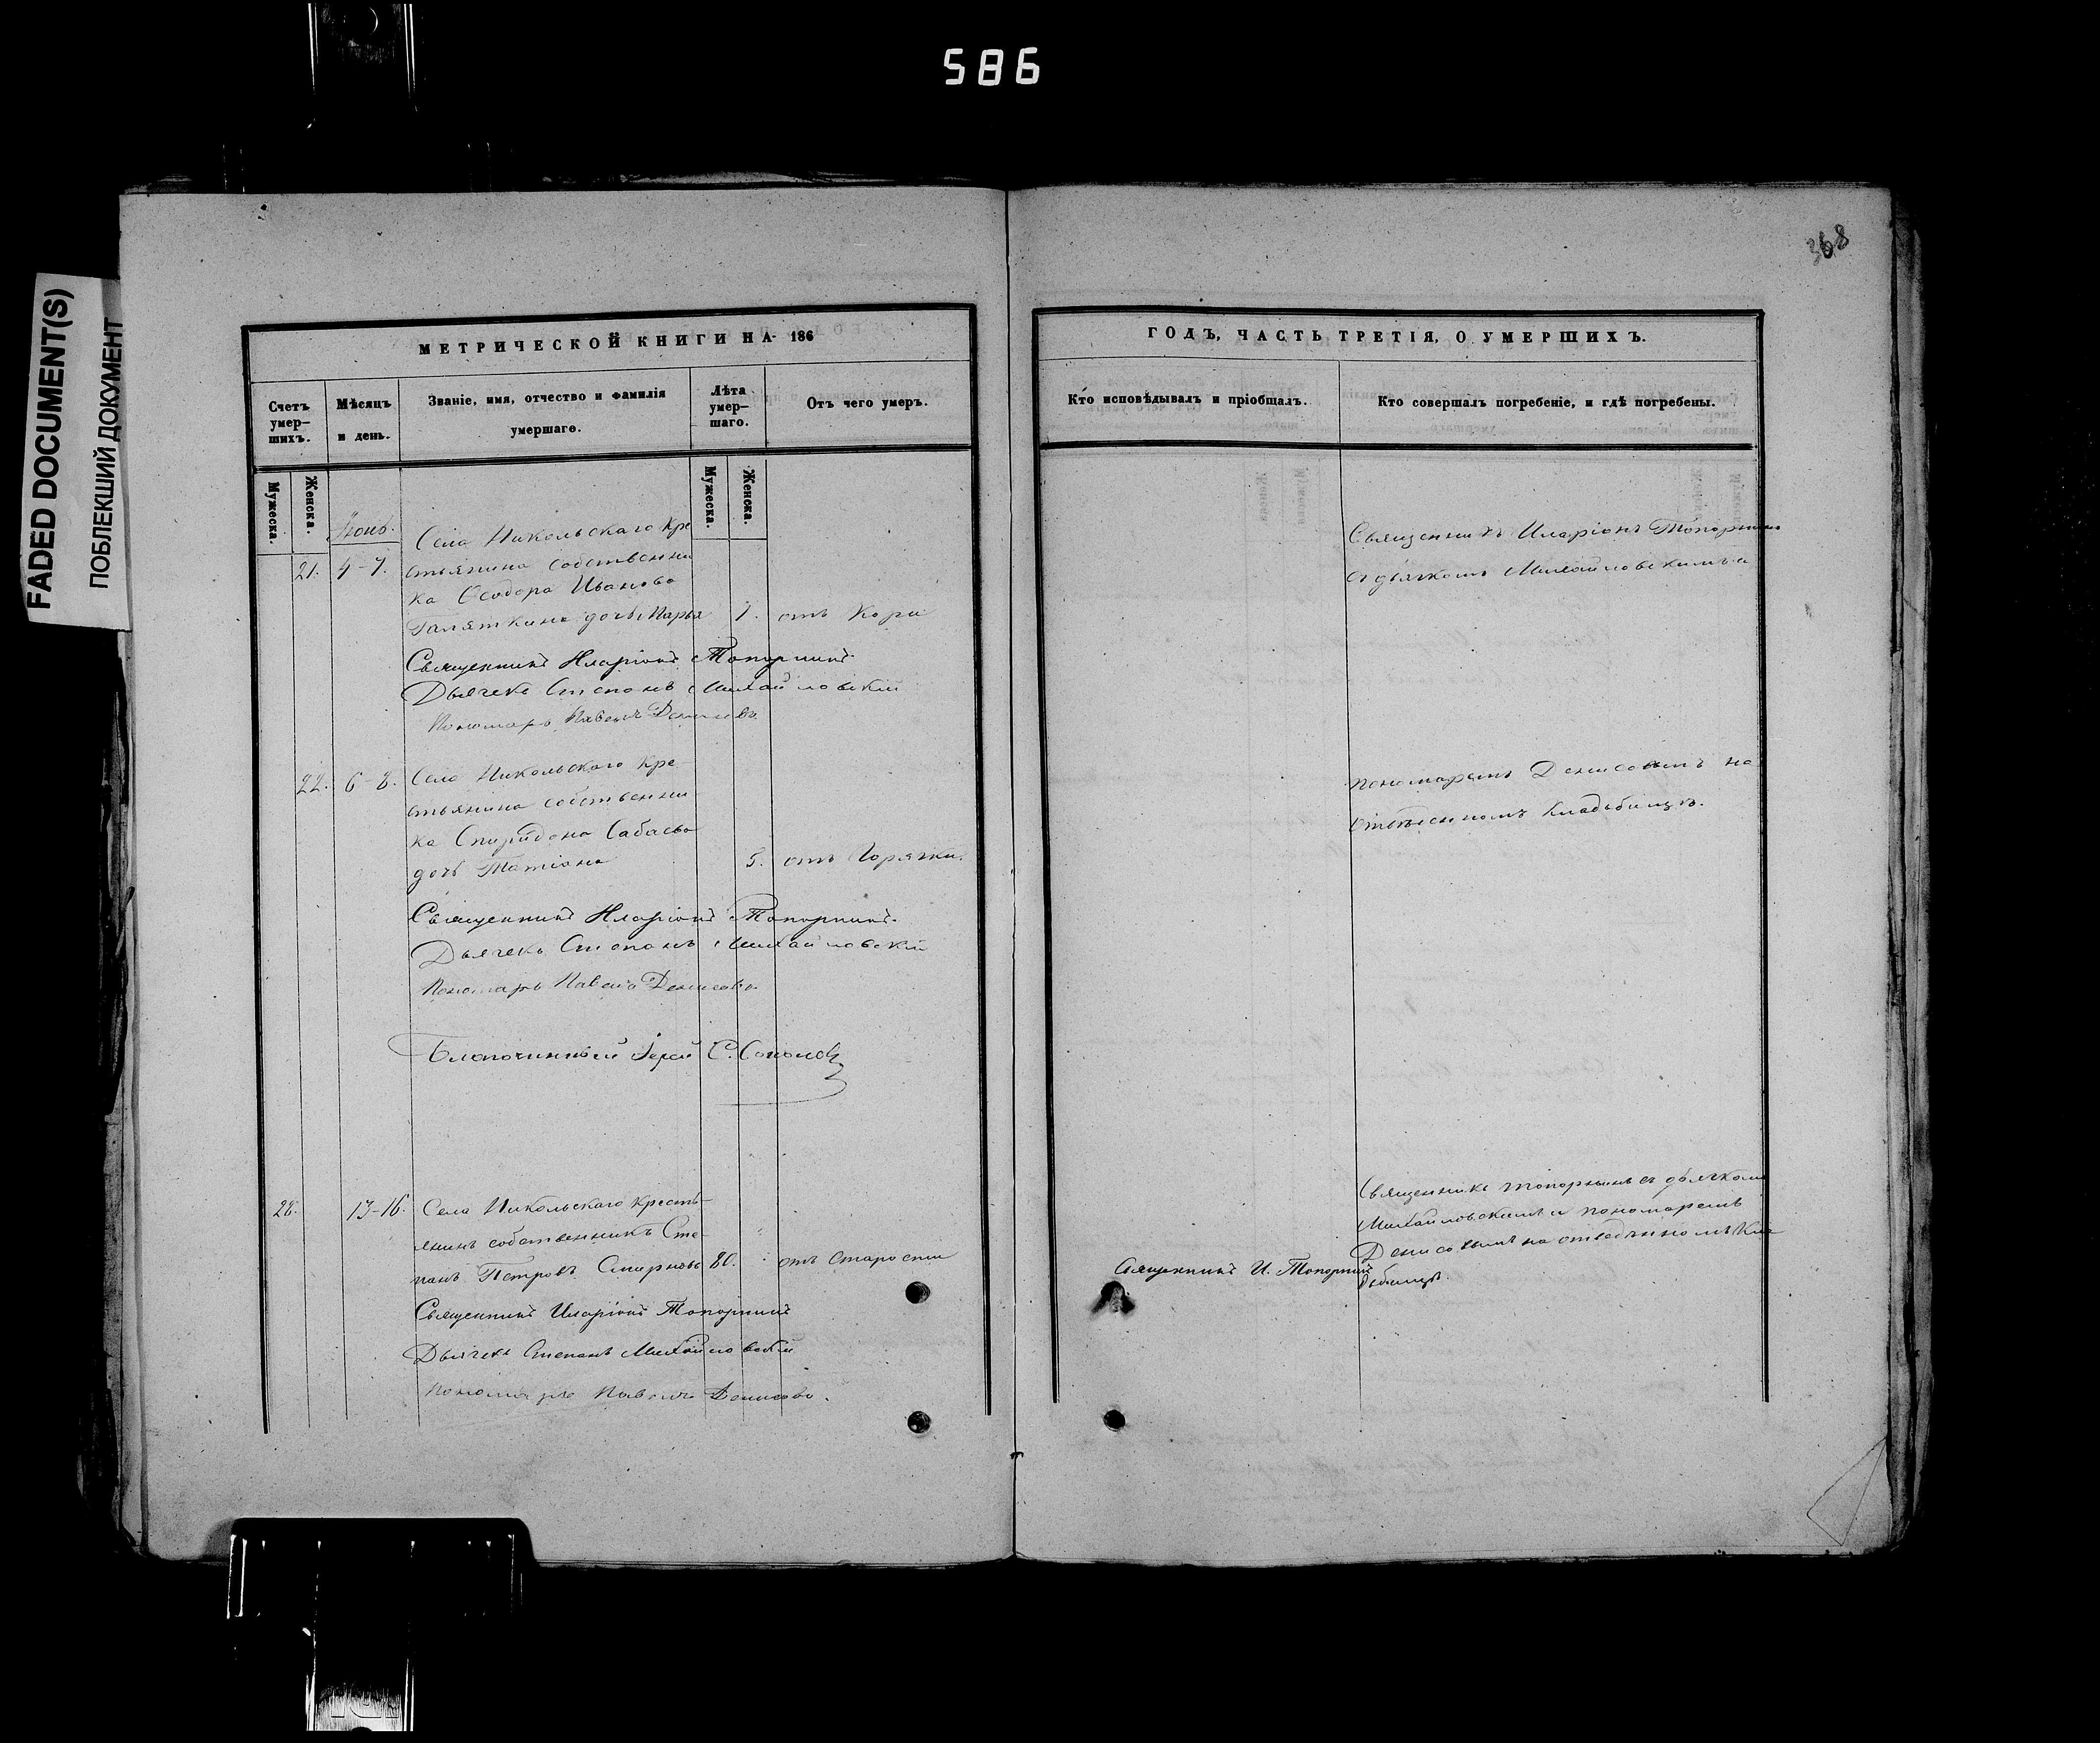 586
FADED DOCUMENT(S)
ПОБЛЕКШИЙ ДОКУМЕНТ
368
МЕТРИЧЕСКОЙ КНИГИ НА 186
Счетъ умер-шихъ.
Мужеска.
Женска.
Мѣсяцъ и день.
Званіе, имя, отчество и фамилія умершаго.
Лѣта умер-шаго.
Мужеска.
Женска.
Отъ чего умеръ.
Іюнь.
21. 4-7. Села Никольскаго кре
стьянина собственни
ка Ѳеодора Иванова
дочь Марья 1. отъ Кори
Священникъ Иларіонъ Топорнинъ
Дьячекъ Степанъ Михайловскій
Пономарь Павелъ Денисовъ
22. 6-8. Села Никольскаго кре
стьянина собственни
ка Спиридона Савасва
дочь Татіана 5. отъ Горячки.
Священникъ Иларіонъ Топорнинъ
Дьячекъ Степанъ Михайловскій
Пономарь Павелъ Денисовъ
Благочинный Іерей С. Соколовъ
28. 13-16. Села Никольскаго кресть-
янинъ собственникъ Сте-
панъ Петровъ Смирновъ 80. отъ старости
Священникъ Иларіонъ Топорнинъ
Дьячекъ Степанъ Михайловскій
Пономарь Павелъ Денисовъ.
ГОДЪ, ЧАСТЬ ТРЕТІЯ, О УМЕРШИХЪ.
Кто исповѣдывалъ и пріобщалъ.
Кто совершалъ погребеніе, и гдѣ погребены.
Священникъ Иларіонъ Топорнинъ
съ дьячкомъ Михайловскимъ и
пономаремъ Денисовымъ на
кладбищѣ.
Священникъ Топорнинъ съ дьячкомъ
Михайловскимъ и пономаремъ
Денисовымъ на отведенномъ кла
Священникъ И. Топорнинъ
дбищѣ.